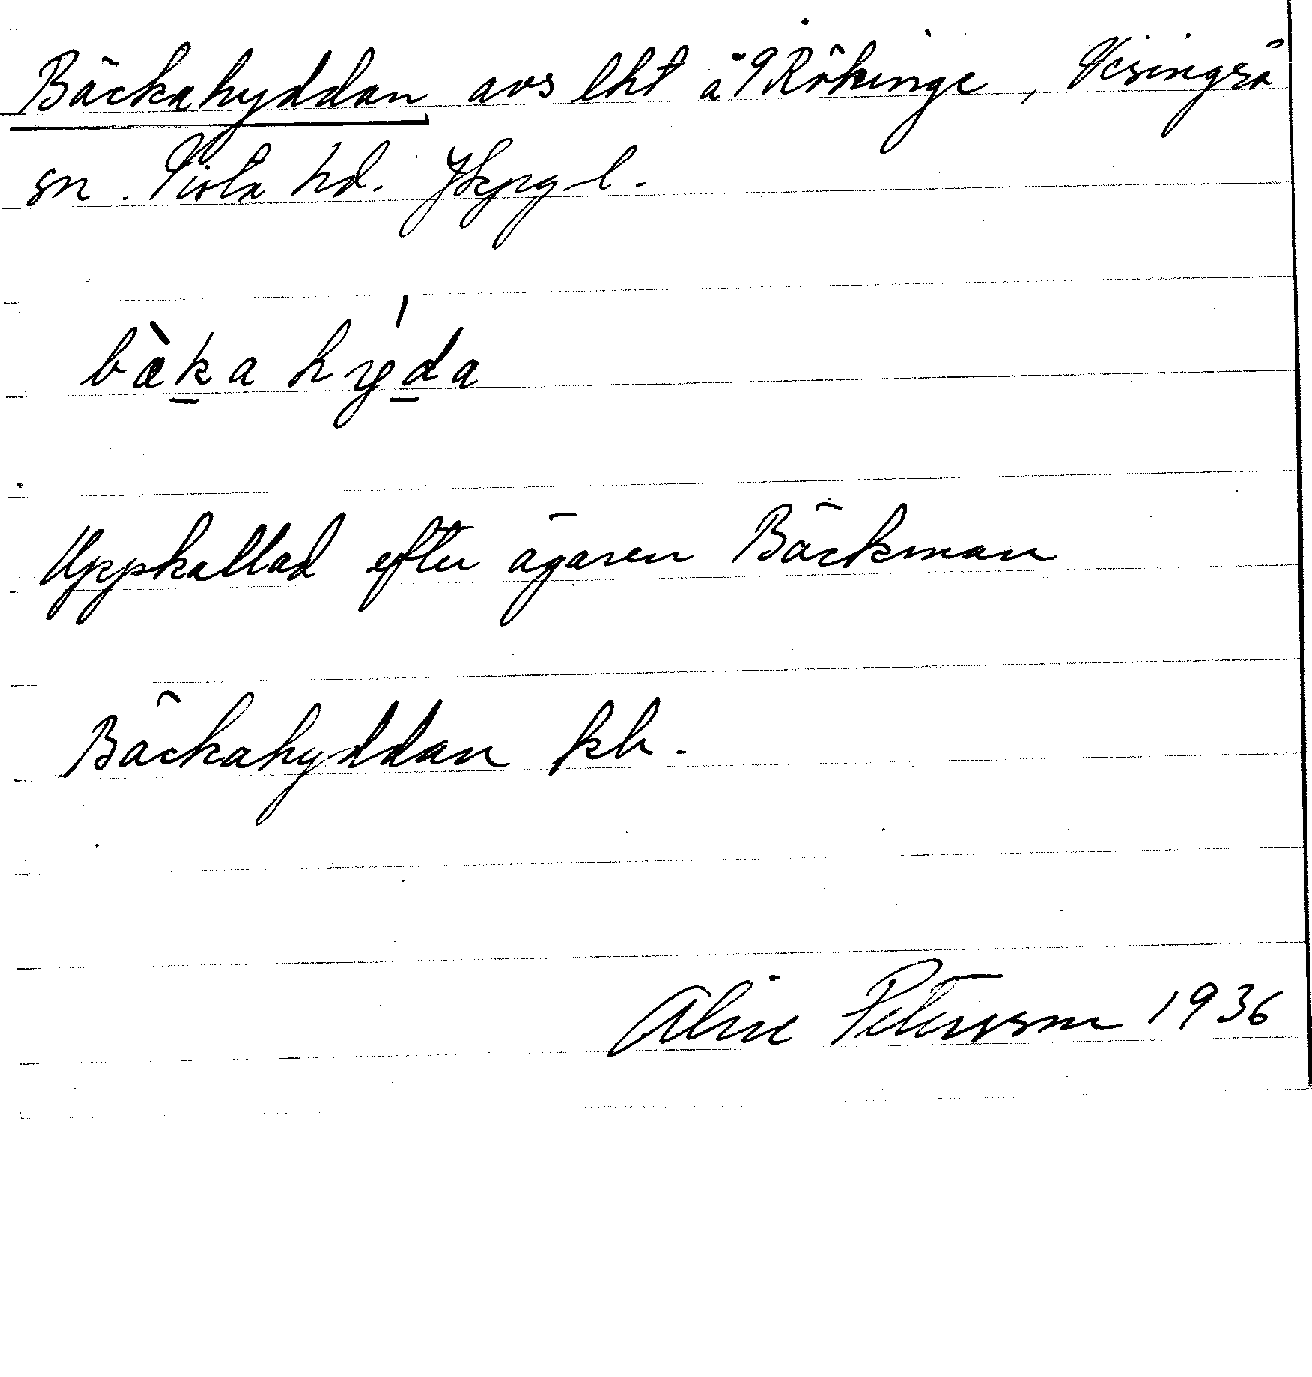 Bäckahyddan avs lht å Rökinge, Visingsö
sn. Vista hd. Jkpg l.
bæ̀ka hýda
Uppkallad efter ägaren Bäckman
Bäckahyddan kb.
Aline Petersson 1936